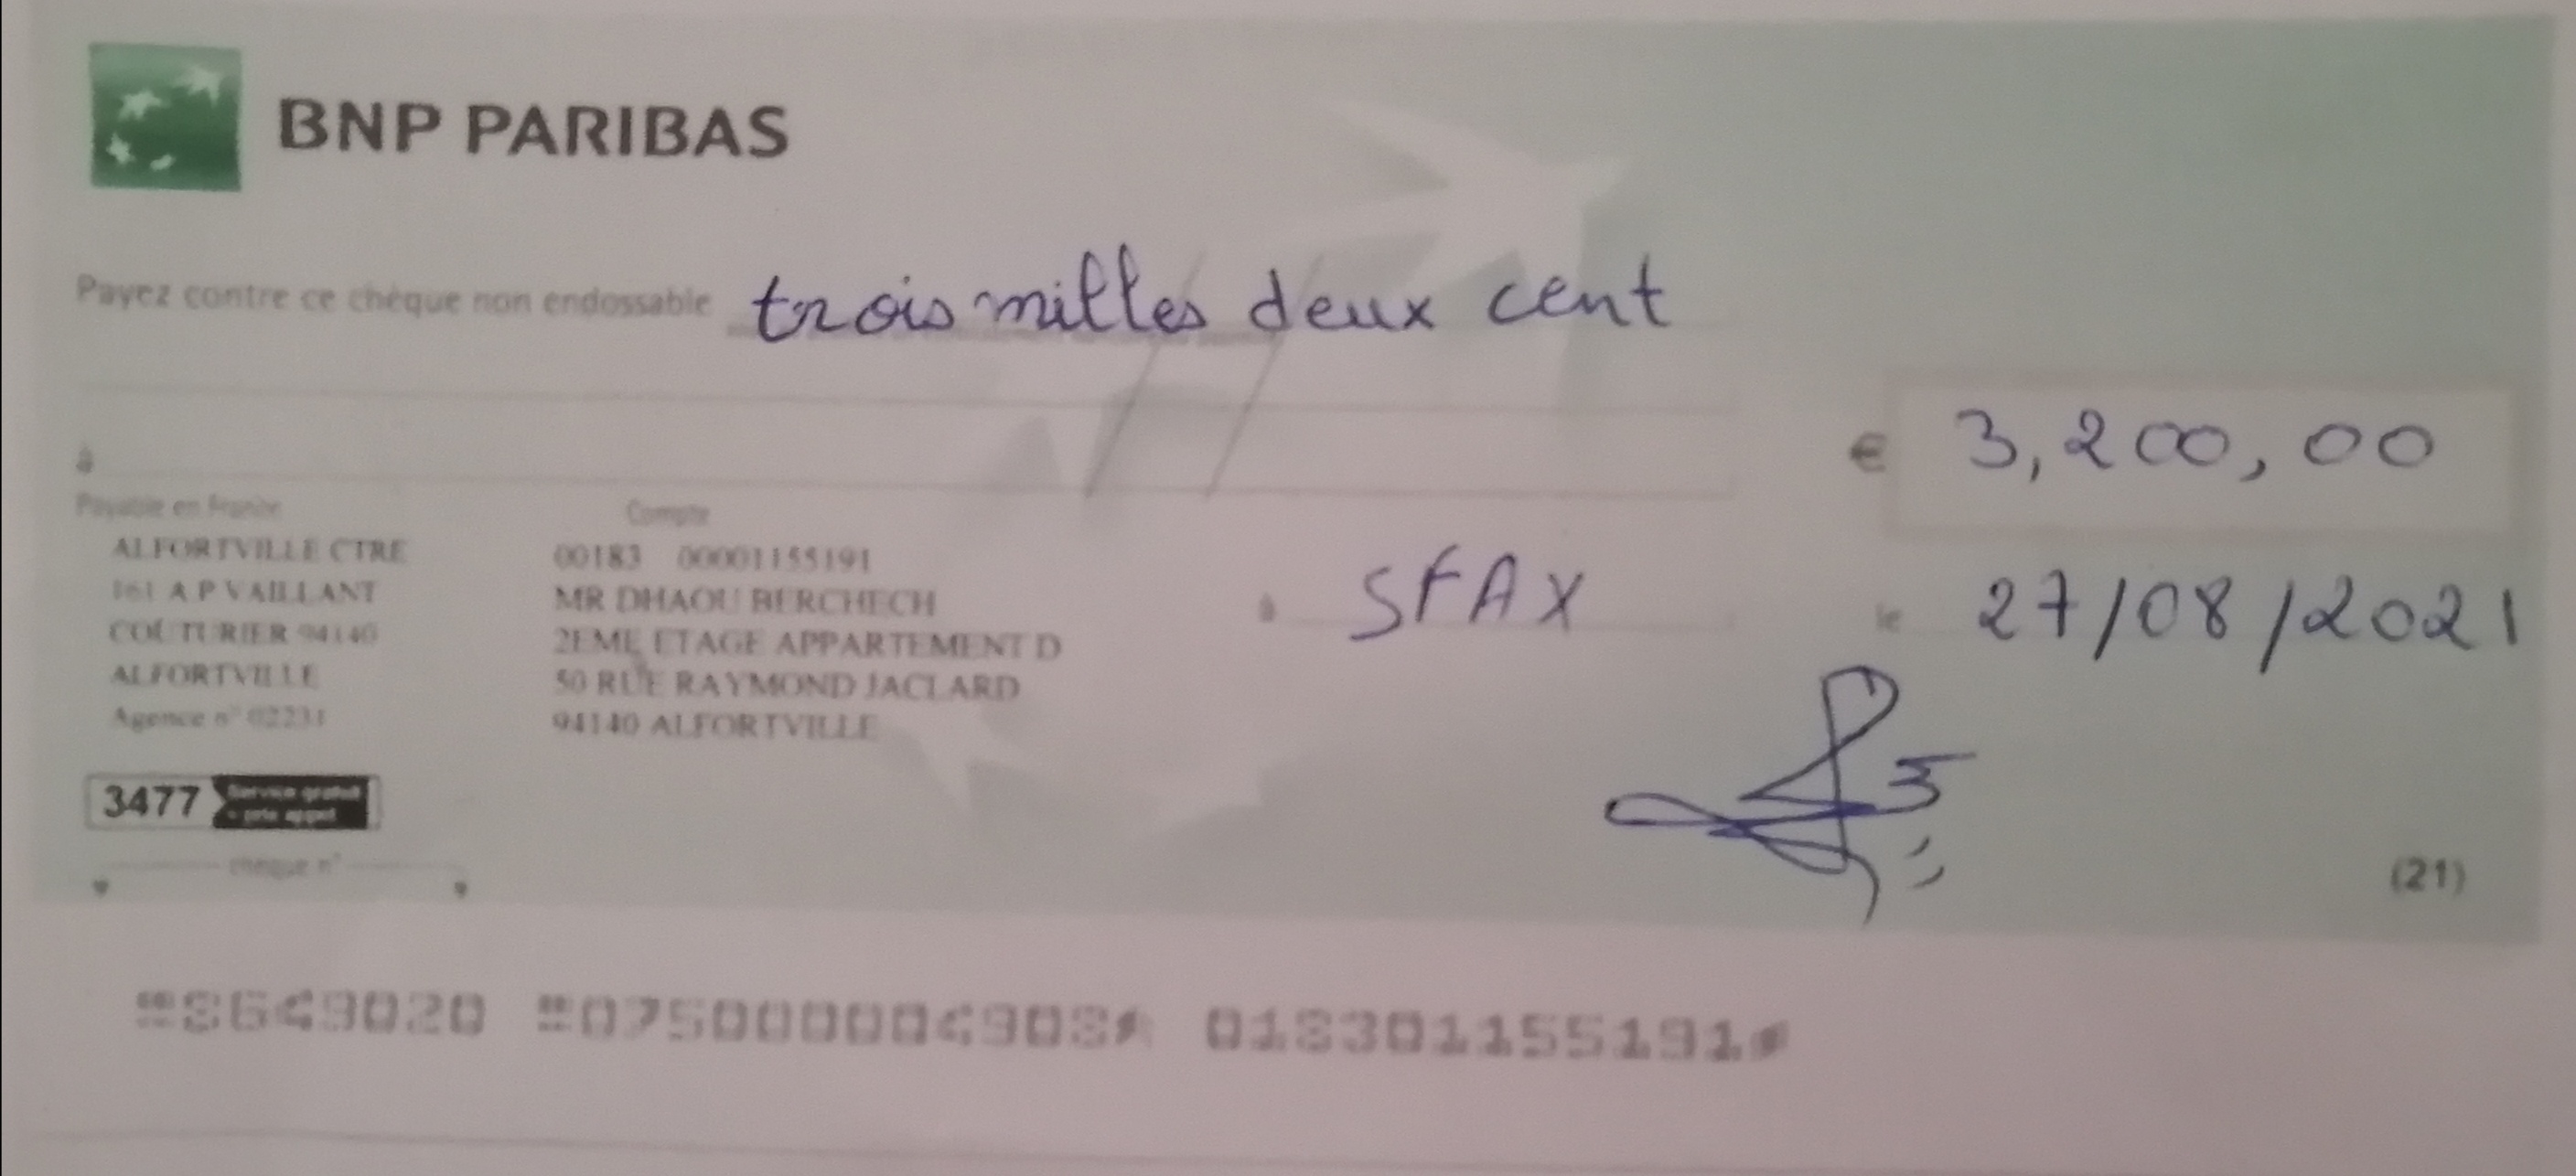 BNP PARIBAS
Payez contre ce chèque non endossable trois milles deux cent
€ 3,200,00
à
Payable en France
Compte
ALFORTVILLE CTRE
161 A P VAILLANT
COUTURIER 94140
ALFORTVILLE
Agence n° 02231
00183 00001155191
MR DHAOU BERCHECH
2EME ETAGE APPARTEMENT D
50 RUE RAYMOND JACLARD
94140 ALFORTVILLE
à SFAX
le 27/08/2021
3477 Service gratuit
+ prix appel
chèque n°
(21)
8649020 075000004908 018301155191